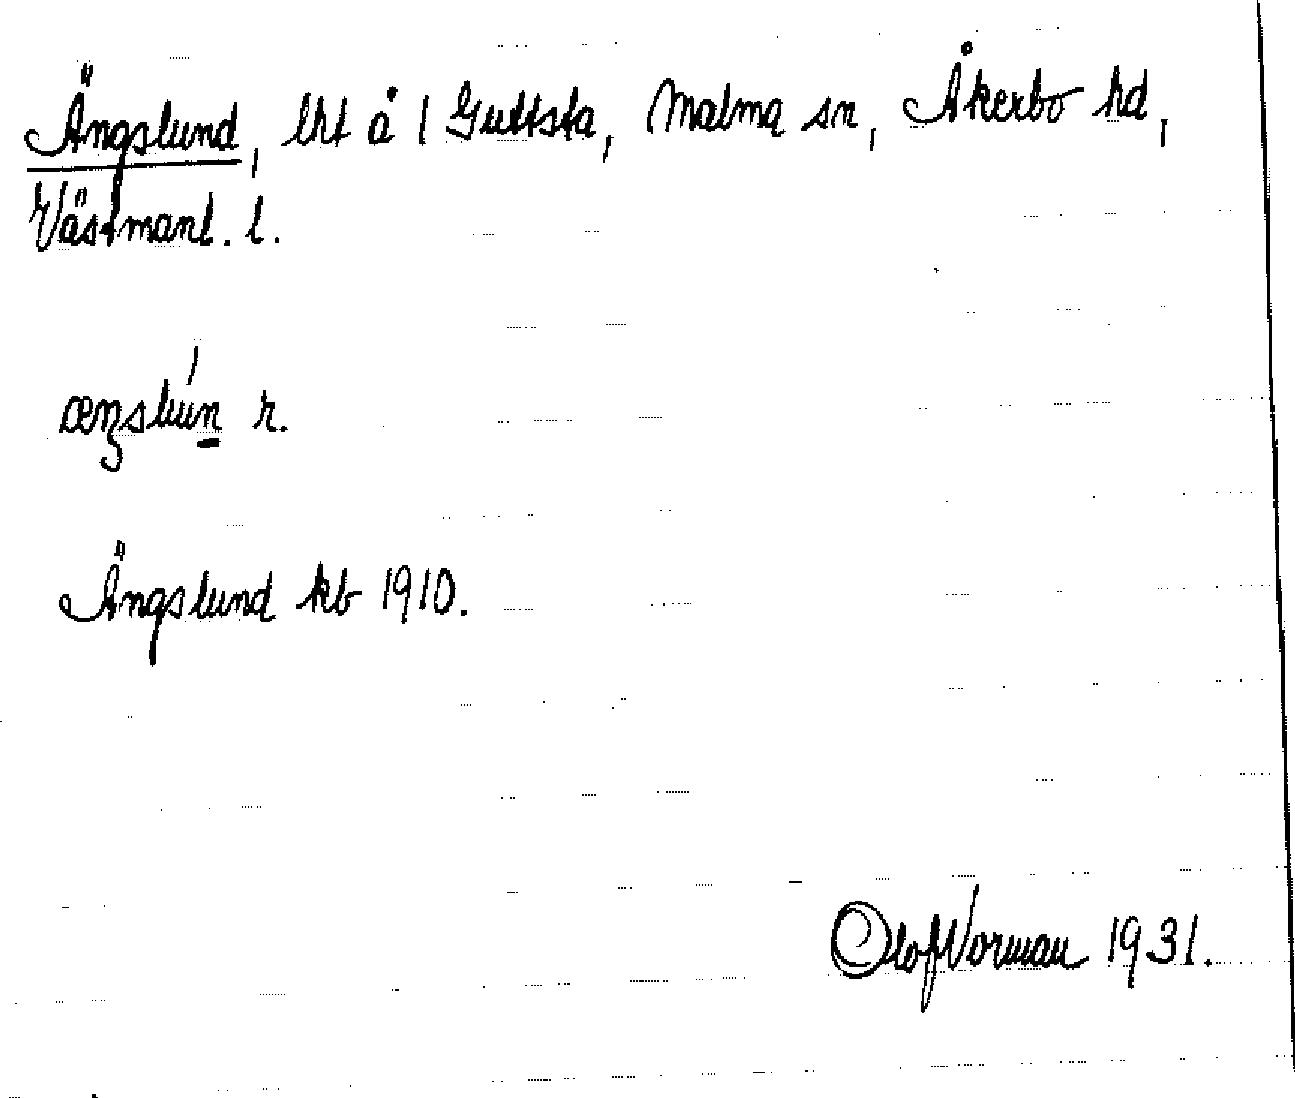 Ängslund, lht å 1 Guttsta, Malma sn, Åkerbo hd,
Västmanl. l.
r.
Ängslund kb 1910.
Olof Norman 1931.